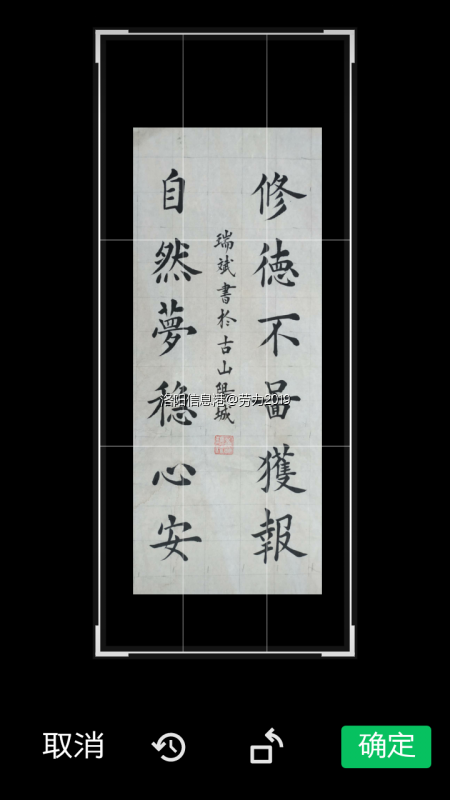 修徳不啚獲報
瑞斌書於古山城
自然夢稳心安
洛阳信息港@劳力2019
取消
确定